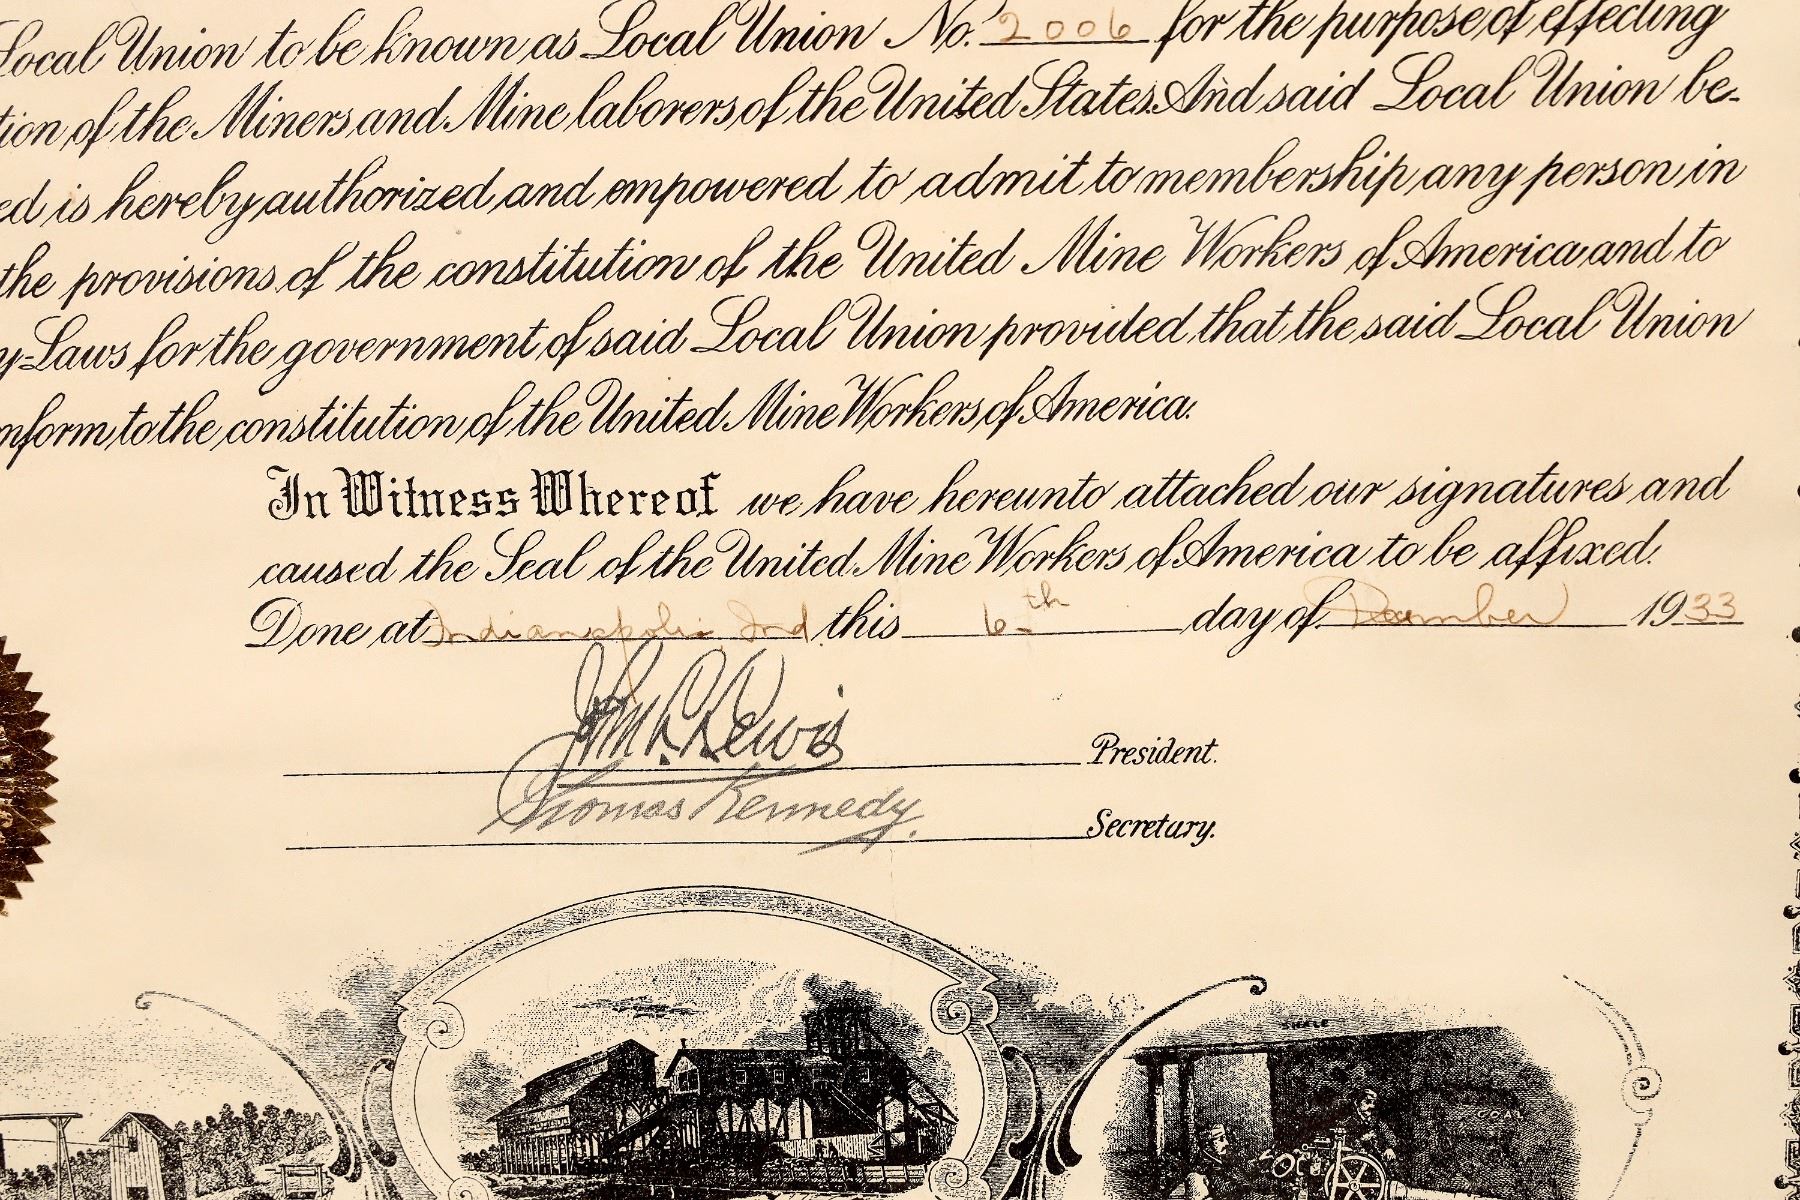 Local Union to be known as Local Union No. 2006 for the purpose of effecting
tion of the Miners and Mine laborers of the United States. And said Local Union be-
ed is hereby authorized and empowered to admit to membership any person in
the provisions of the constitution of the United Mine Workers of America and to
y-Laws for the government of said Local Union provided that the said Local Union
nform to the constitution of the United Mine Workers of America.
In Witness Whereof we have hereunto attached our signatures and
caused the Seal of the United Mine Workers of America to be affixed.
Done at Indianapolis Ind this 6th day of December 1933
John L. Lewis President.
Thomas Kennedy. Secretary.
SHALE
COAL